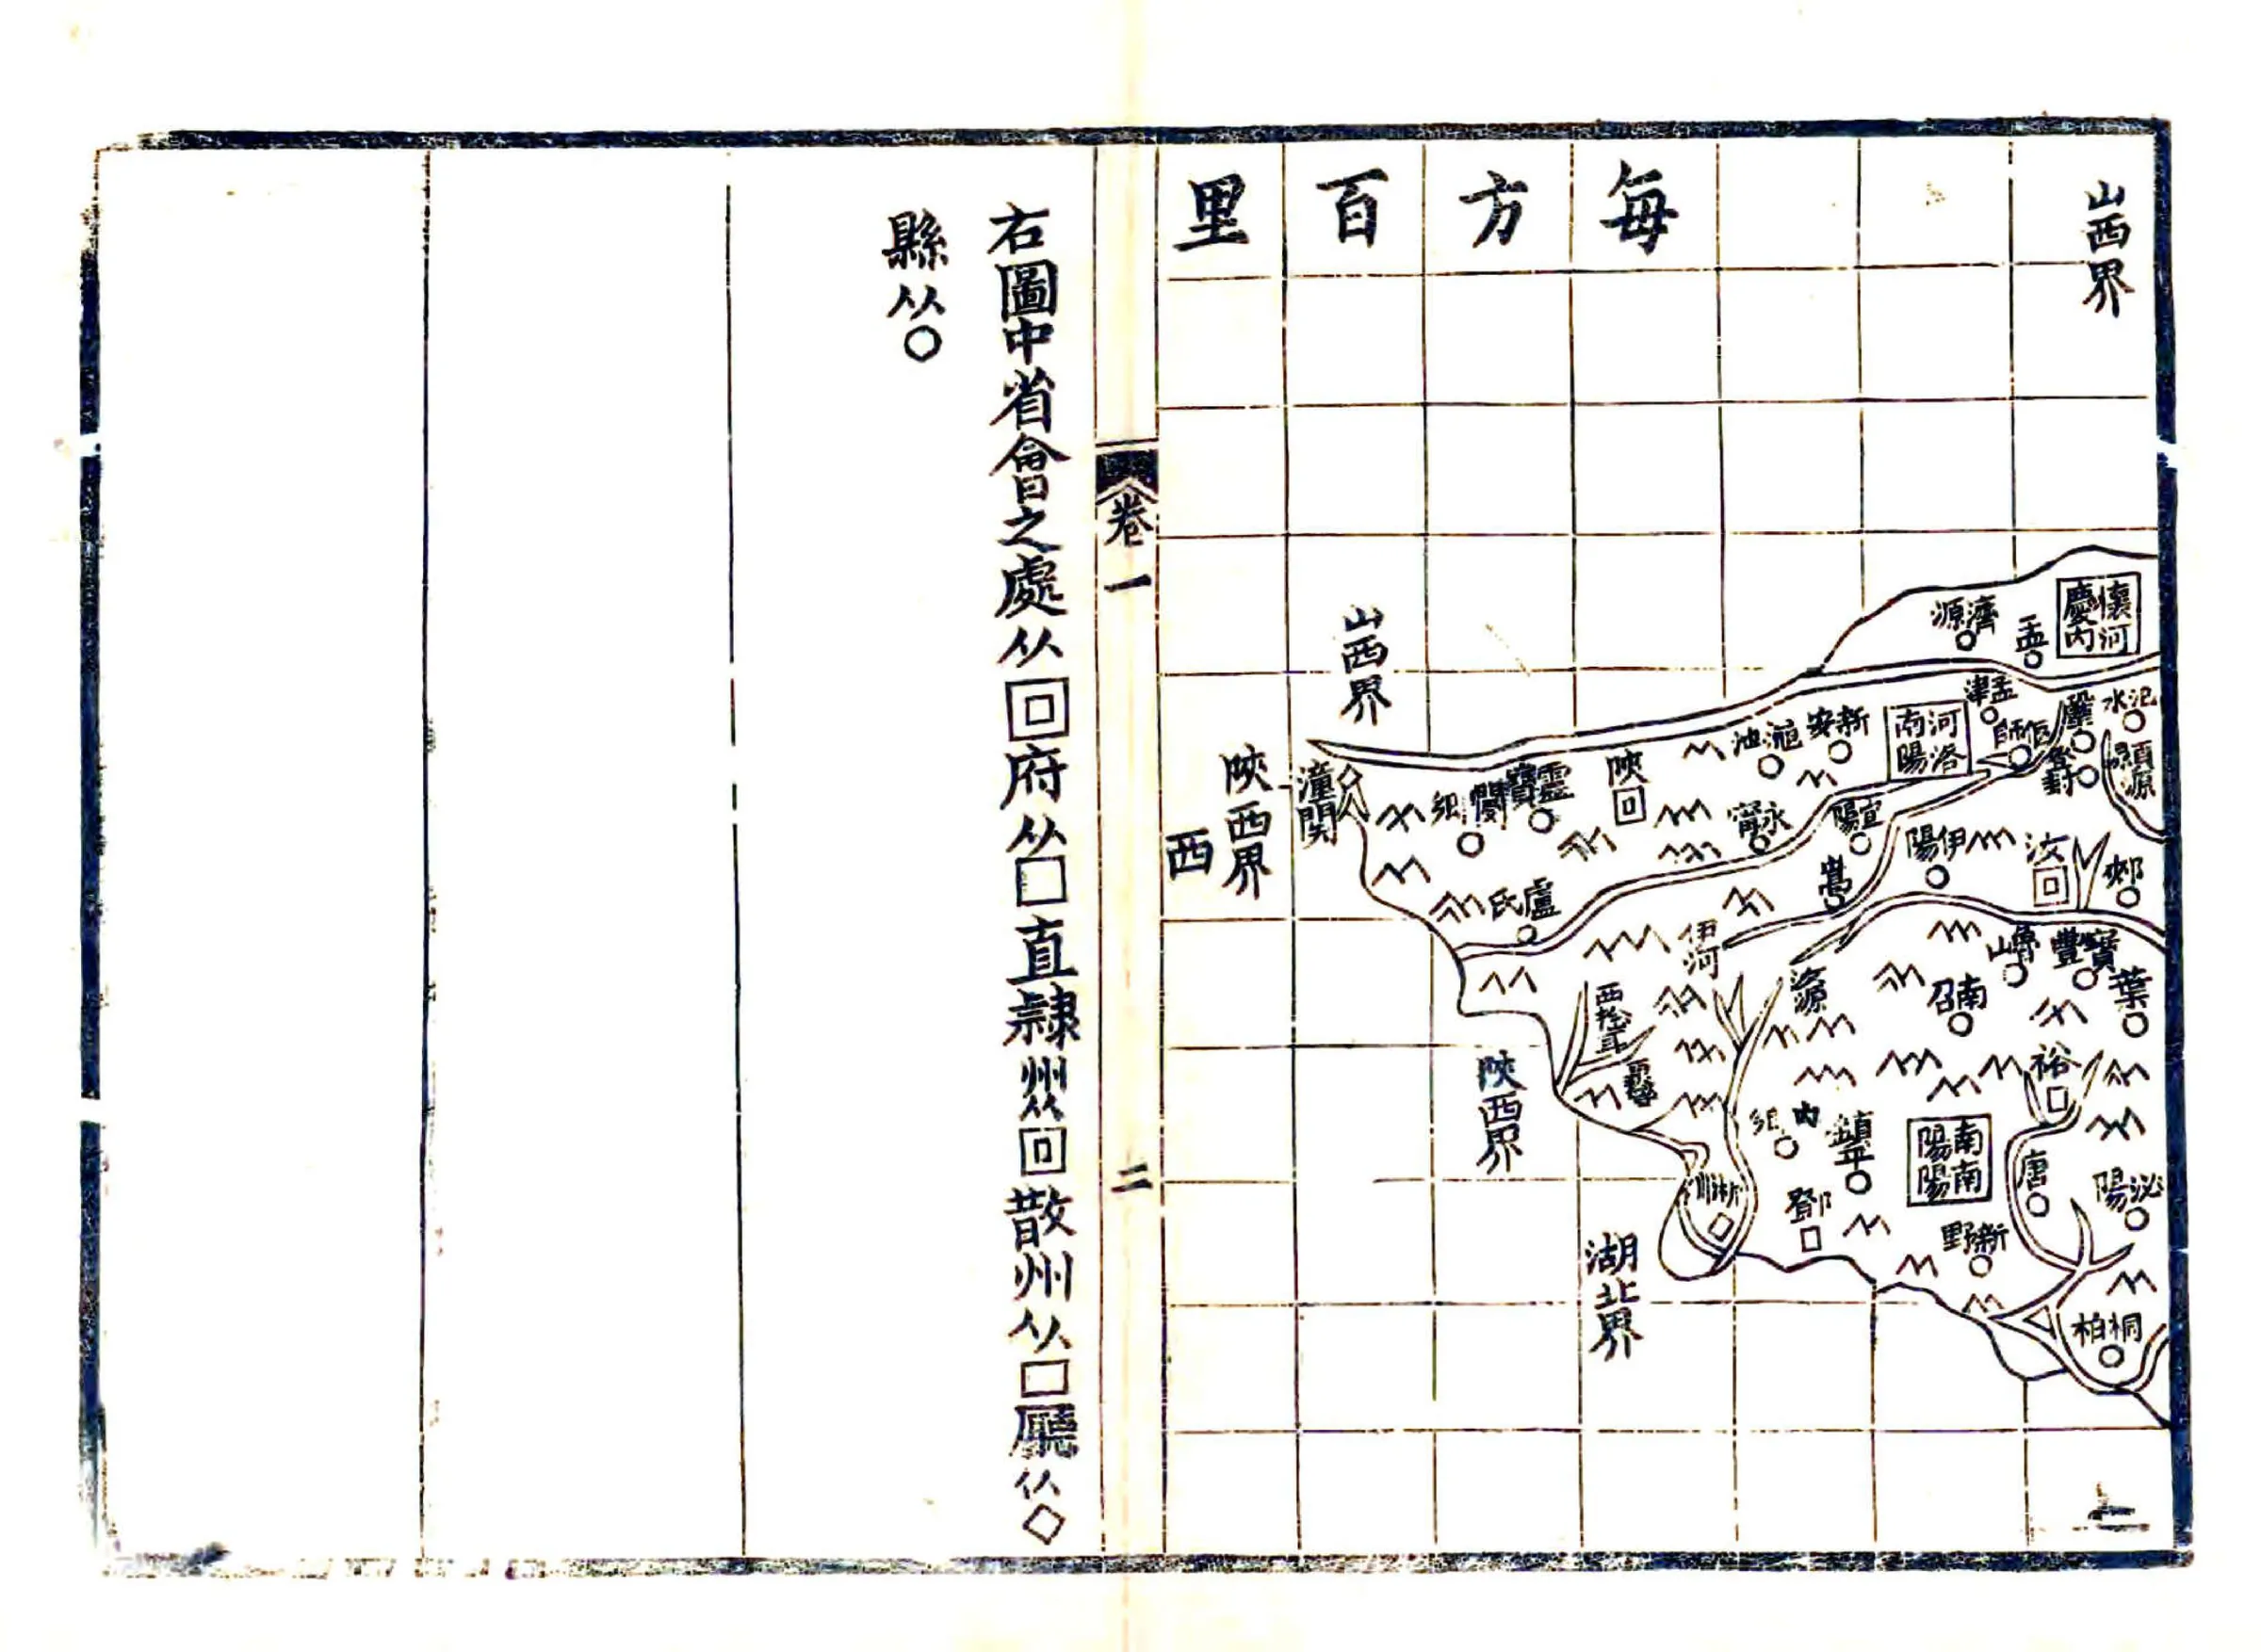 每方百里
山西界
懷慶
河內
濟源
孟
汜水
鞏
孟津
偃師
河南
洛陽
新安
澠池
登封
潁源
陝
靈寶
閿鄉
潼關
山西界
陝西界
西
永寧
宜陽
伊陽
汝
郟
嵩
盧氏
伊河
魯山
寶豐
葉
南召
裕
內鄉
鎮平
南陽
南陽
唐
泌陽
淅川
鄧
新野
桐柏
陝西界
湖北界
卷一
二
右圖中省會之處从回府从口直隸州从回散州从口廳从◇
縣从○